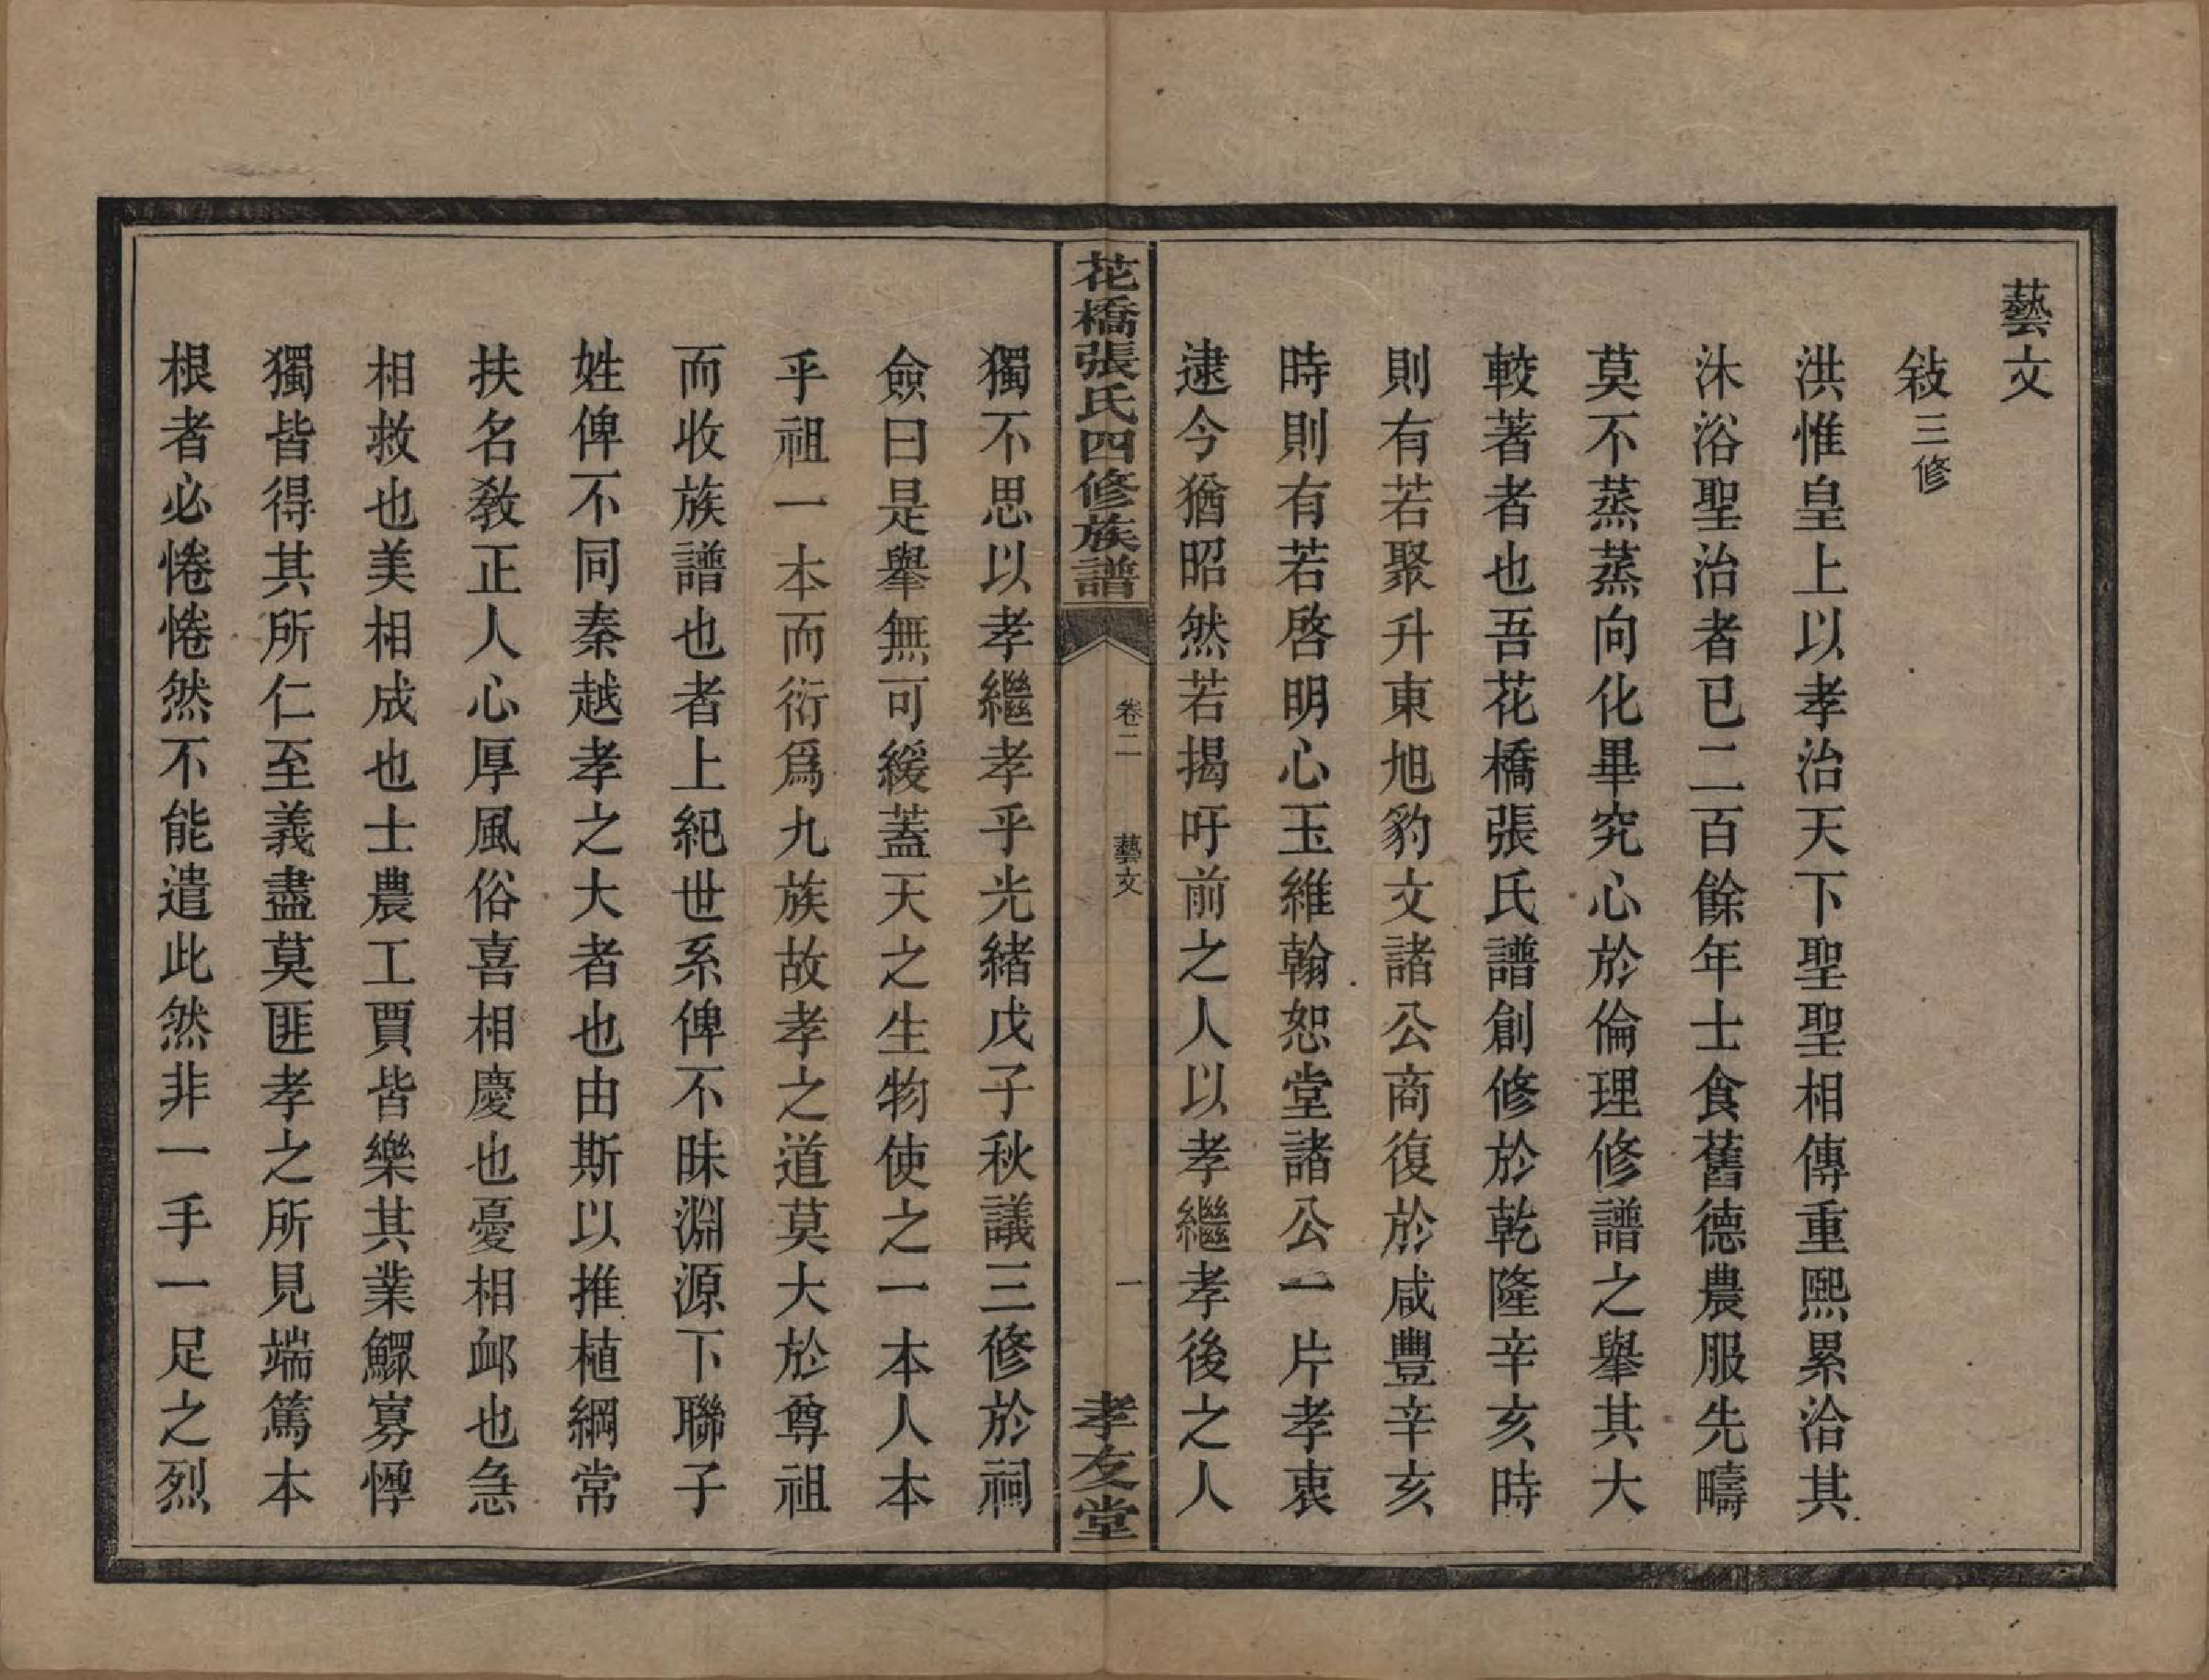 藝文
敍三修
洪惟皇上以孝治天下聖聖相傳重熙累洽其
沐浴聖治者已二百餘年士食舊德農服先疇
莫不蒸蒸向化畢究心於倫理修譜之舉其大
較著者也吾花橋張氏譜創修於乾隆辛亥時
則有若聚升東旭豹文諸公商復於咸豐辛亥
時則有若啓明心玉維翰恕堂諸公一片孝衷
逮今猶昭然若揭吁前之人以孝繼孝後之人
花橋張氏四修族譜
卷二
藝文
一
孝友堂
獨不思以孝繼孝乎光緒戊子秋議三修於祠
僉曰是舉無可緩蓋天之生物使之一本人本
乎祖一本而衍爲九族故孝之道莫大於尊祖
而收族譜也者上紀世系俾不昧淵源下聯子
姓俾不同秦越孝之大者也由斯以推植綱常
扶名教正人心厚風俗喜相慶也憂相卹也急
相救也美相成也士農工賈皆樂其業鰥寡惸
獨皆得其所仁至義盡莫匪孝之所見端篤本
根者必惓惓然不能遣此然非一手一足之烈